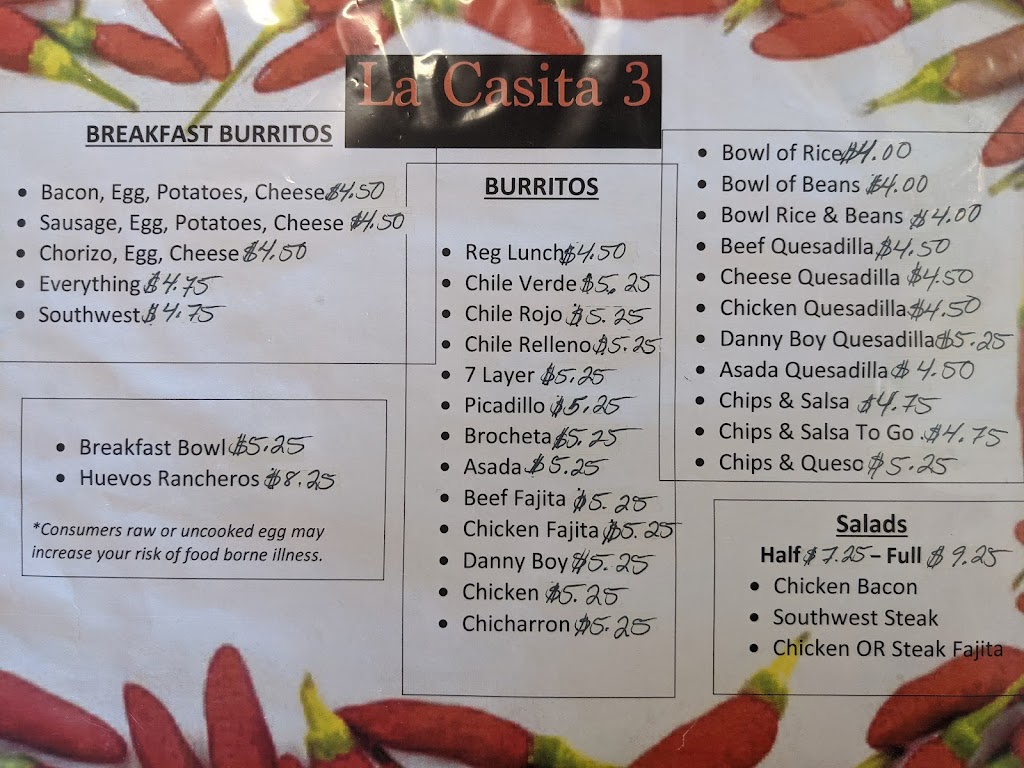 La Casita 3
BREAKFAST BURRITOS
Bacon, Egg, Potatoes, Cheese $4.50
Sausage, Egg, Potatoes, Cheese $4.50
Chorizo, Egg, Cheese $4.50
Everything $4.75
Southwest $4.75
Breakfast Bowl $5.25
Huevos Rancheros $8.25
*Consumers raw or uncooked egg may
increase your risk of food borne illness.
BURRITOS
Reg Lunch $4.50
Chile Verde $5.25
Chile Rojo $5.25
Chile Relleno $5.25
7 Layer $5.25
Picadillo $5.25
Brocheta $5.25
Asada $5.25
Beef Fajita $5.25
Chicken Fajita $5.25
Danny Boy $5.25
Chicken $5.25
Chicharron $5.25
Bowl of Rice $4.00
Bowl of Beans $4.00
Bowl Rice & Beans $4.00
Beef Quesadilla $4.50
Cheese Quesadilla $4.50
Chicken Quesadilla $4.50
Danny Boy Quesadilla $5.25
Asada Quesadilla $4.50
Chips & Salsa $4.75
Chips & Salsa To Go $4.75
Chips & Queso $5.25
Salads
Half $7.25 – Full $9.25
Chicken Bacon
Southwest Steak
Chicken OR Steak Fajita